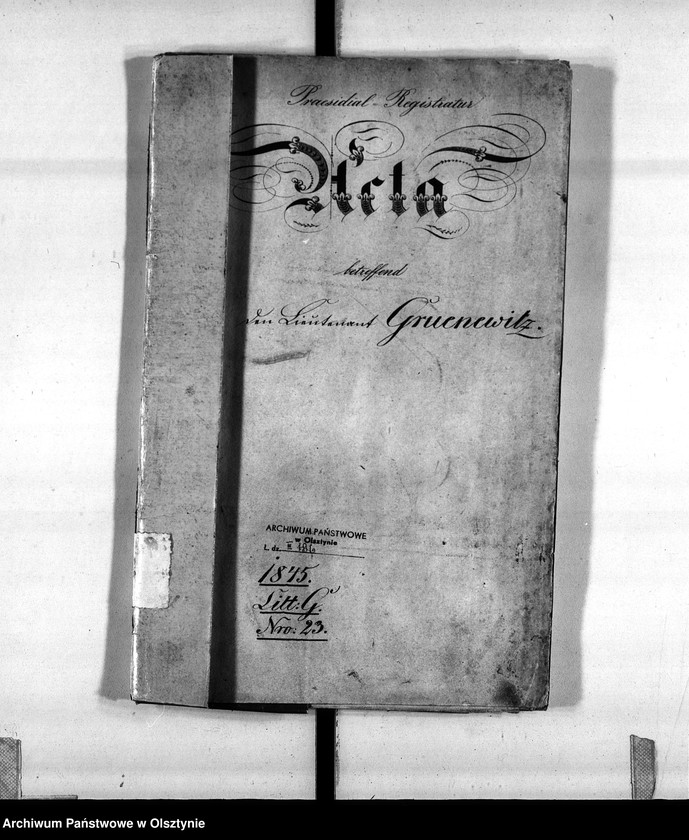 Praesidial-Registratur
Acta
betreffend
den Lieutenant Gruenewitz.
ARCHIWUM PAŃSTWOWE
w Olsztynie
L. dz.
1845.
Litt: G.
Nro: 23.
Archiwum Państwowe w Olsztynie